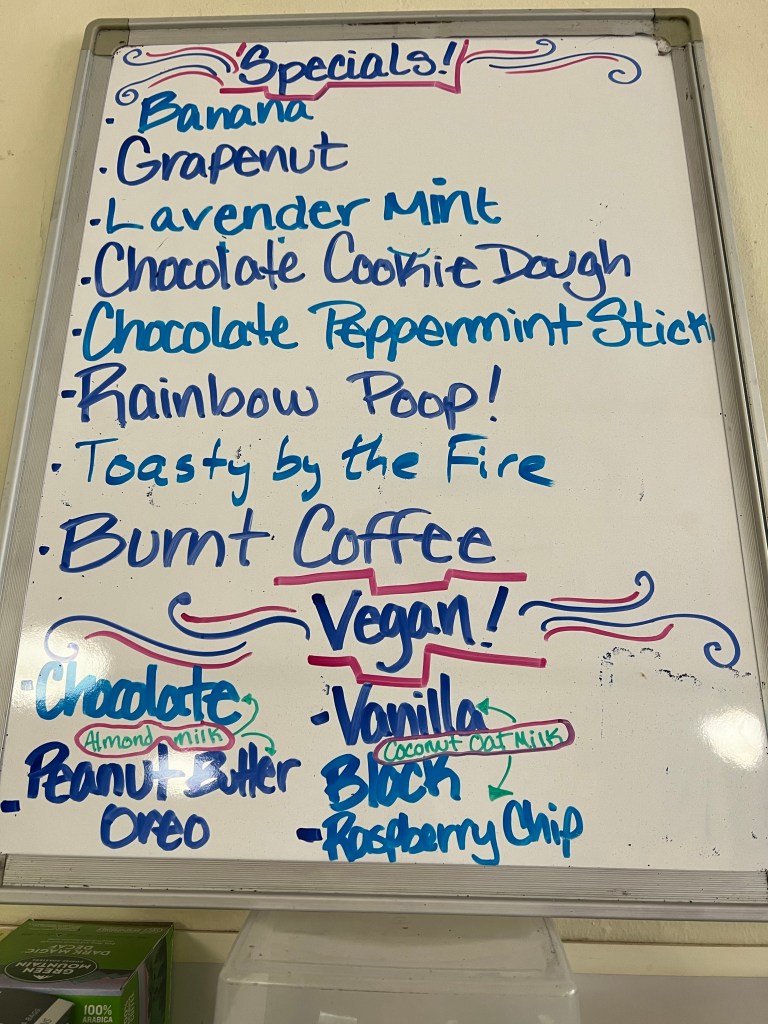 Specials!
· Banana
· Grapenut
· Lavender Mint
· Chocolate Cookie Dough
· Chocolate Peppermint Stick
- Rainbow Poop!
· Toasty by the Fire
· Burnt Coffee
Vegan!
- Chocolate
Almond milk
- Peanut Butter
Oreo
- Vanilla
Coconut Oat Milk
Black
- Raspberry Chip
GREEN MOUNTAIN
DARK MAGIC
DECAF
100%
ARABICA